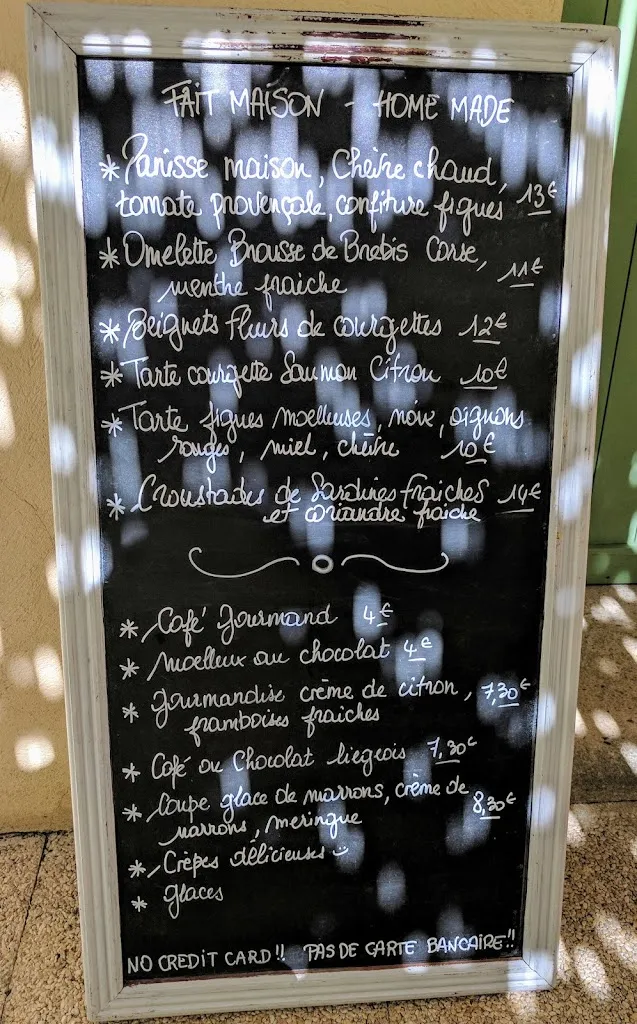 FAIT MAISON - HOME MADE
* Panisse maison, Chèvre chaud,
tomate provençale, confiture figues 13€
* Omelette Brousse de Brebis Corse,
menthe fraiche 11€
* Beignets fleurs de courgettes 12€
* Tarte courgette Saumon Citron 10€
* Tarte figues moelleuses, noix, oignons
rouges, miel, chèvre 10€
* Croustades de Sardines fraiches 14€
et coriandre fraiche
* Café Gourmand 4€
* Moelleux au chocolat 4€
* Gourmandise crème de citron, 7,30€
framboises fraiches
* Café ou Chocolat liegeois 7,30€
* Coupe glace de marrons, crème de
marrons, meringue 8,30€
* Crèpes délicieuses
* glaces
NO CREDIT CARD!! PAS DE CARTE BANCAIRE!!